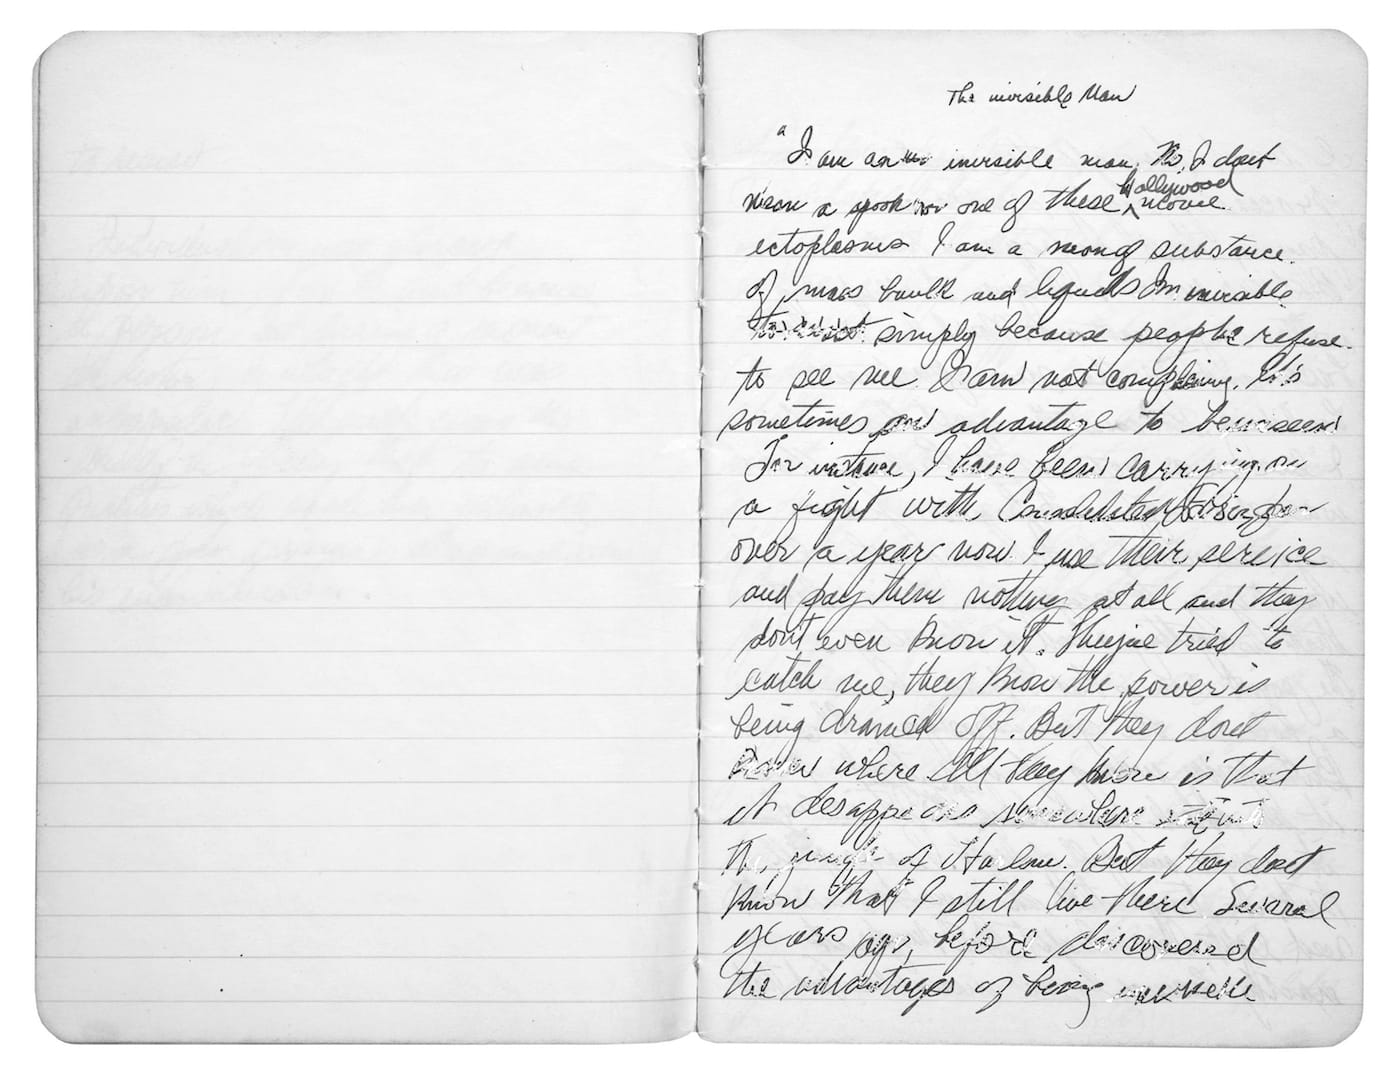 The invisible Man
"I am an invisible man. No, I dont
mean a spook nor one of these Hollywood movie
ectoplasms I am a man of substance.
of mass baulk and liquids Im invisible
simply because people refuse
to see me. I am not complaining. It's
sometimes an advantage to be unseen
For instance, I have been carrying on
a fight with Consolidated Edison for
over a year now. I use their service
and pay them nothing at all and they
dont even know it. They've tried to
catch me, they know the power is
being drained off. But they dont
know where. All they know is that
it desappears somewhere into
the jungle of Harlem. But they dont
know that I still live there Several
years ago, before I discovered
the advantages of being invisible